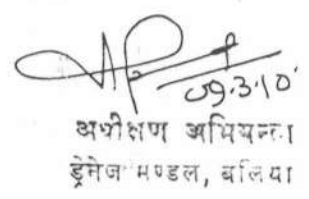 09.3.10
अधीक्षण अभियन्ता
ड्रेनेज मण्डल, बलिया